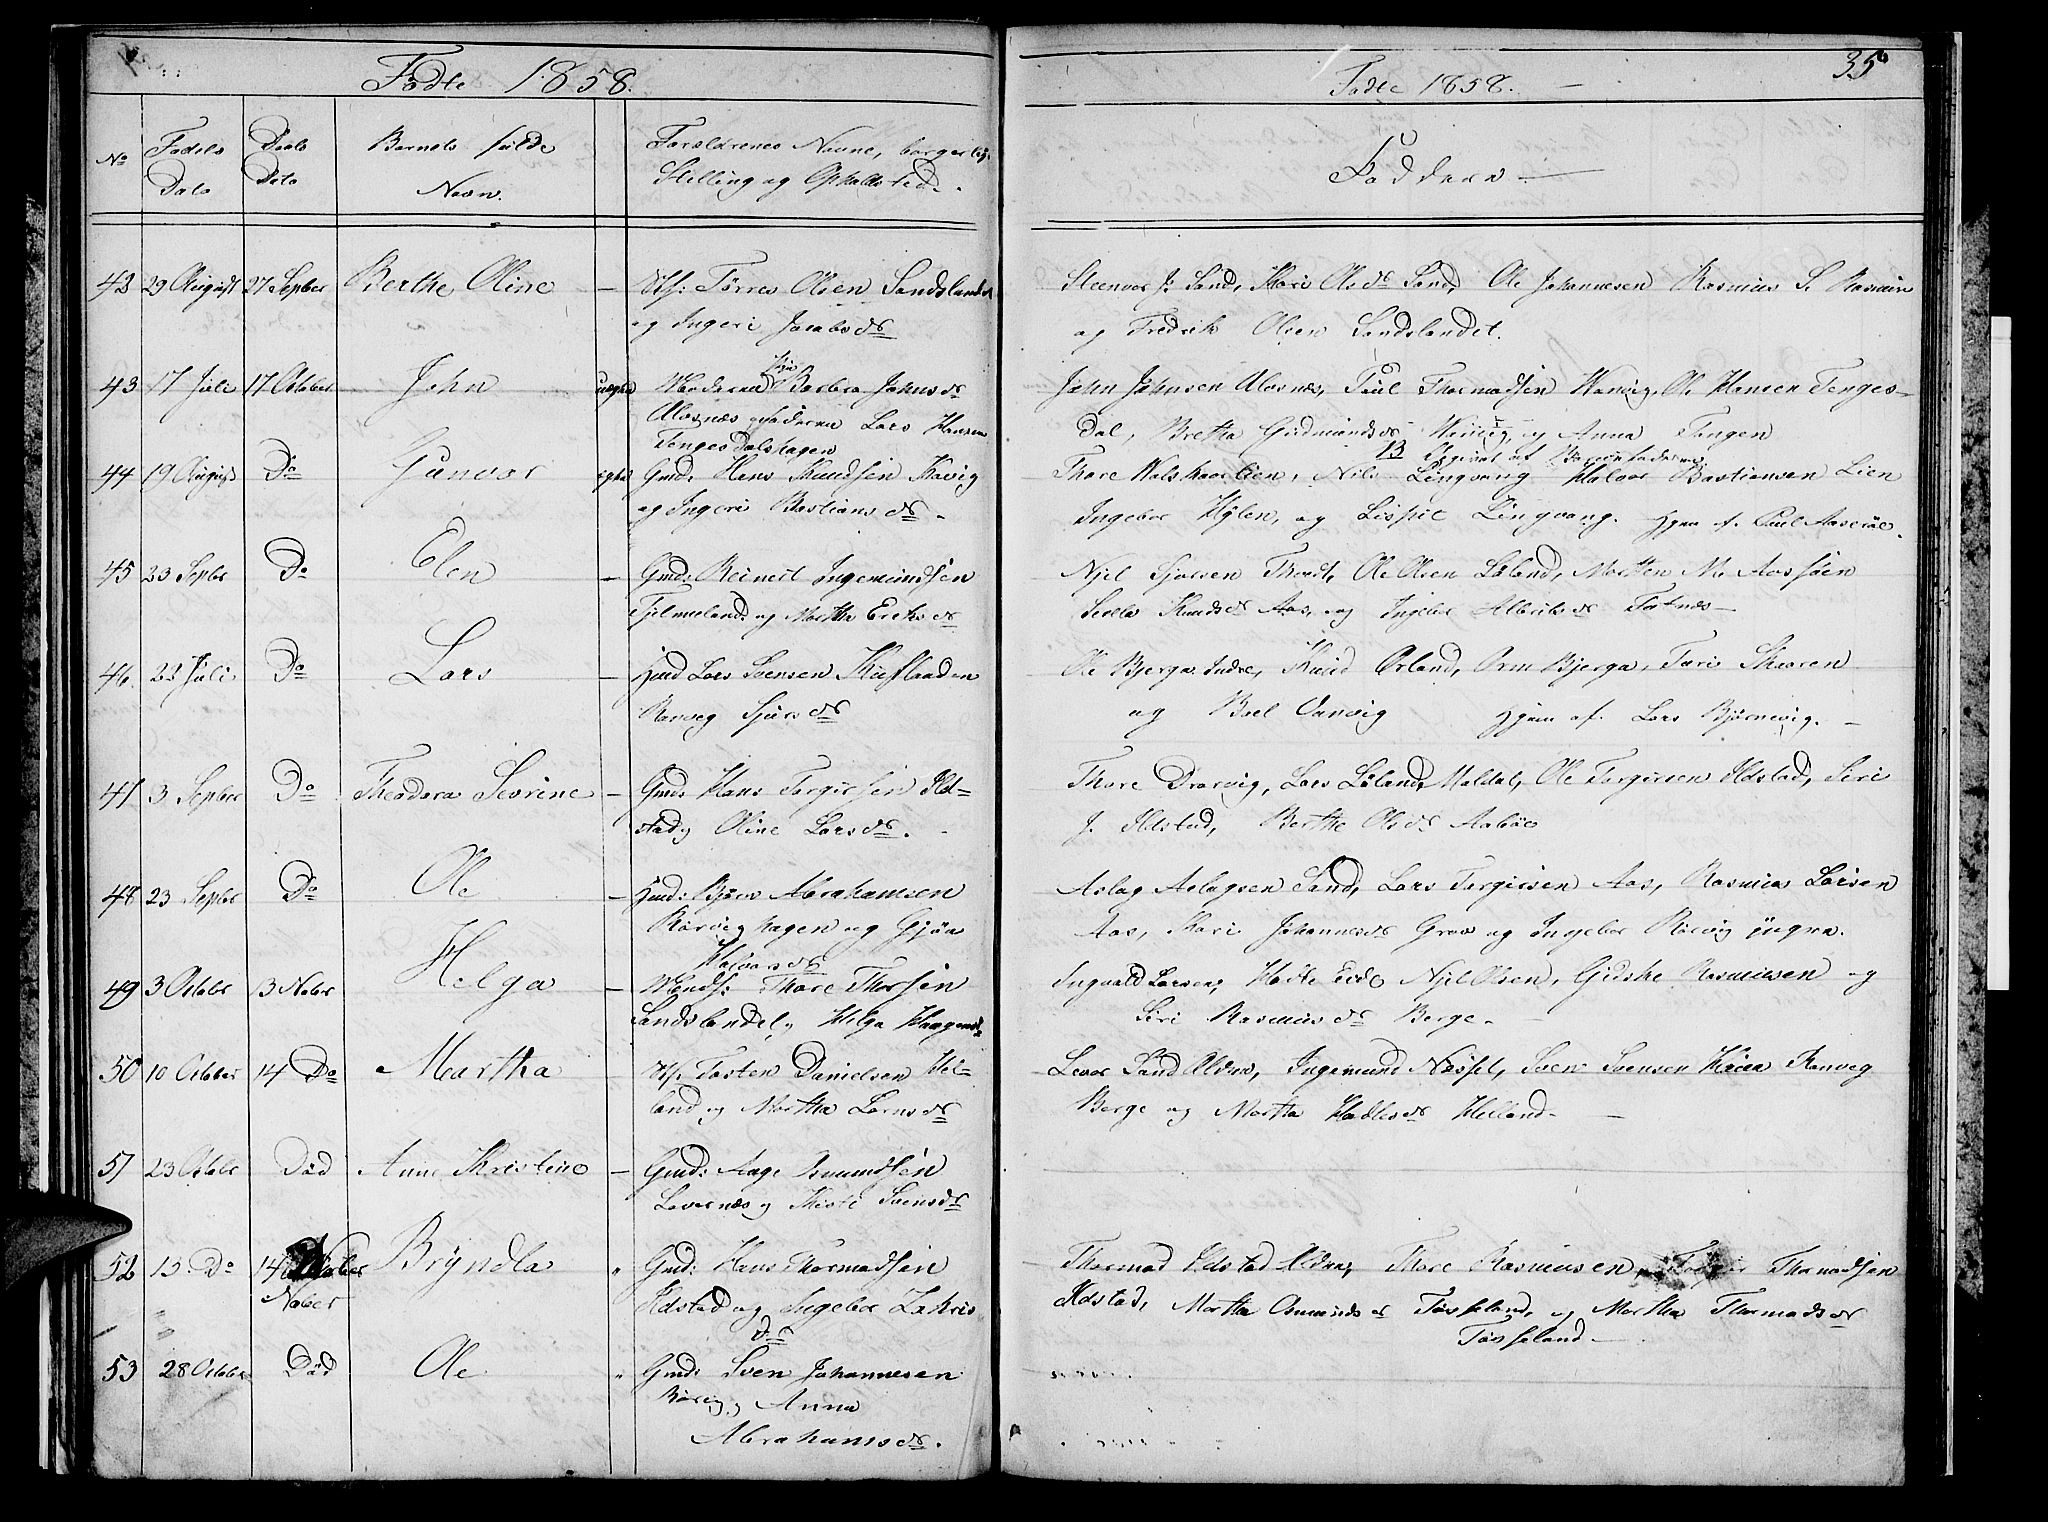 Fødte 1858.
No Fødsels Dato Daabs Dato Barnets fulde Navn. Forældrenes Navne, borgerlig Stilling og Opholdsted.
42 29 August 27 Septber Berthe Oline — Hf: Tørres Olsen Sandslandet
og Ingeri Jacobsdr
43 17 Juli 17 October John uægte Moderen Barbra Johnsdr
Alosnæs og Faderen Lars Hansen
Tengesdalshagen
44 19 August Do Gunvor ægte Gmd: Hans Knudsen Havig
og Ingeri Bastiansdr.
45 23 Septbr Do Elen — Gmd: Reinert Ingemundsen
Fjelmeland og Martha Eriksdr
46. 22 Juli Do Lars — Hmd Lars Svensen
Ranveg Sjursdr
47 3 Septbr Do Theodora Sevrine — Gmd: Hans Tergiersen Ild-
stad og Oline Larsdr.
48 23 Septbr Do Ole — Hmd: Bjørn Abrahamsen
Rørvig hagen og Gjøa
Halvorsdr
49 3 Octobr 13 Nobr Helga — Hmds: Thore Thorsen
Sandslandet og Helga Haagensdr
50 10 October 14 Do Martha — Hf. Tosten Danielsen Hel-
land og Martha Larsdr
51 23 Octobr Død Anne Kristine — Gmd: Aage Osmundsen
Lovernæs og Kirsti Svensdr
52 13 Do 14 Nober Bryndla " Gmd: Hans Thormodsen
Ildstad og Ingebor Zakris
dr
53 28 October Død Ole " Gmd: Sven Johannesen
Rørvig og Anna
Abrahamsdr.
Fødte 1858. — 35
Faddere —
Steenvor J. Sand, Kari Olsdr Sand, Ole Johannesen Rasmus S.
og Fredrik Olsen Sandslandet.
John Johnsen Alosnæs, Poul Thormodsen Warvig, Ole Hansen Tenges-
dal, Bretha Gudmundsdr og Anna Tangen
13 Opgivet af Barnefaderen
Thore Nils Lingvang Halvor Bastiansen Lien
Ingebor Hylen, og Lispet Lingvang. Hjem af. Poul
Njel Sjursen Ole Olsen Løland, Morten M. Aos
Knudsdr Aas, og Ingebor Albriksdr
Ole Bjerga Indre, Knud Orland, Orm Bjerga, Turi Skaaren
og Boel Vanvig Hjem af. Lars Bjørnevig. —
Thore Drarvig, Lars Løland Maldal, Ole Tergiersen Ildstad, Siri
J. Ildstad, Berthe Olsdr Aabøe
Aslag Aslagsen Sand, Lars Tergiersen Aas, Rasmus Larsen
Aas, Kari Johannesdr Grov og Ingebor Rørvig yngre.
Ingvald Larsen, Njel Olsen, Gidske Rasmusen og
Siri Rasmusdr Berge. —
Levor Sand Aldrw, Ingemund Nessel, Sven Svensen Ranveg
Berge og Martha Hadlesdr Helland. —
Thormod Ildstad Thore Rasmusen, Thormodsen
Ildstad, Martha Osmundsdr Tøsseland, og Martha Thormodsdr
Tøsseland —